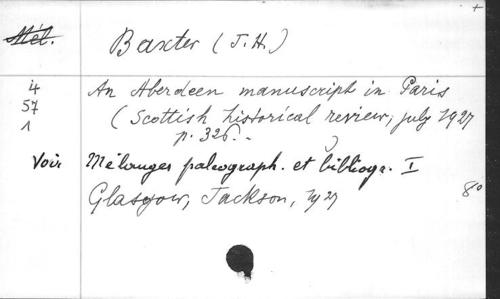 Mél. Baxter (J. H.)
4 An Aberdeen manuscript in Paris
57 (Scottish historical review, july 1927
1 p. 326.
Voir Mélanges paléograph. et bibliogr. I
Glasgow, Jackson, 1927 8°